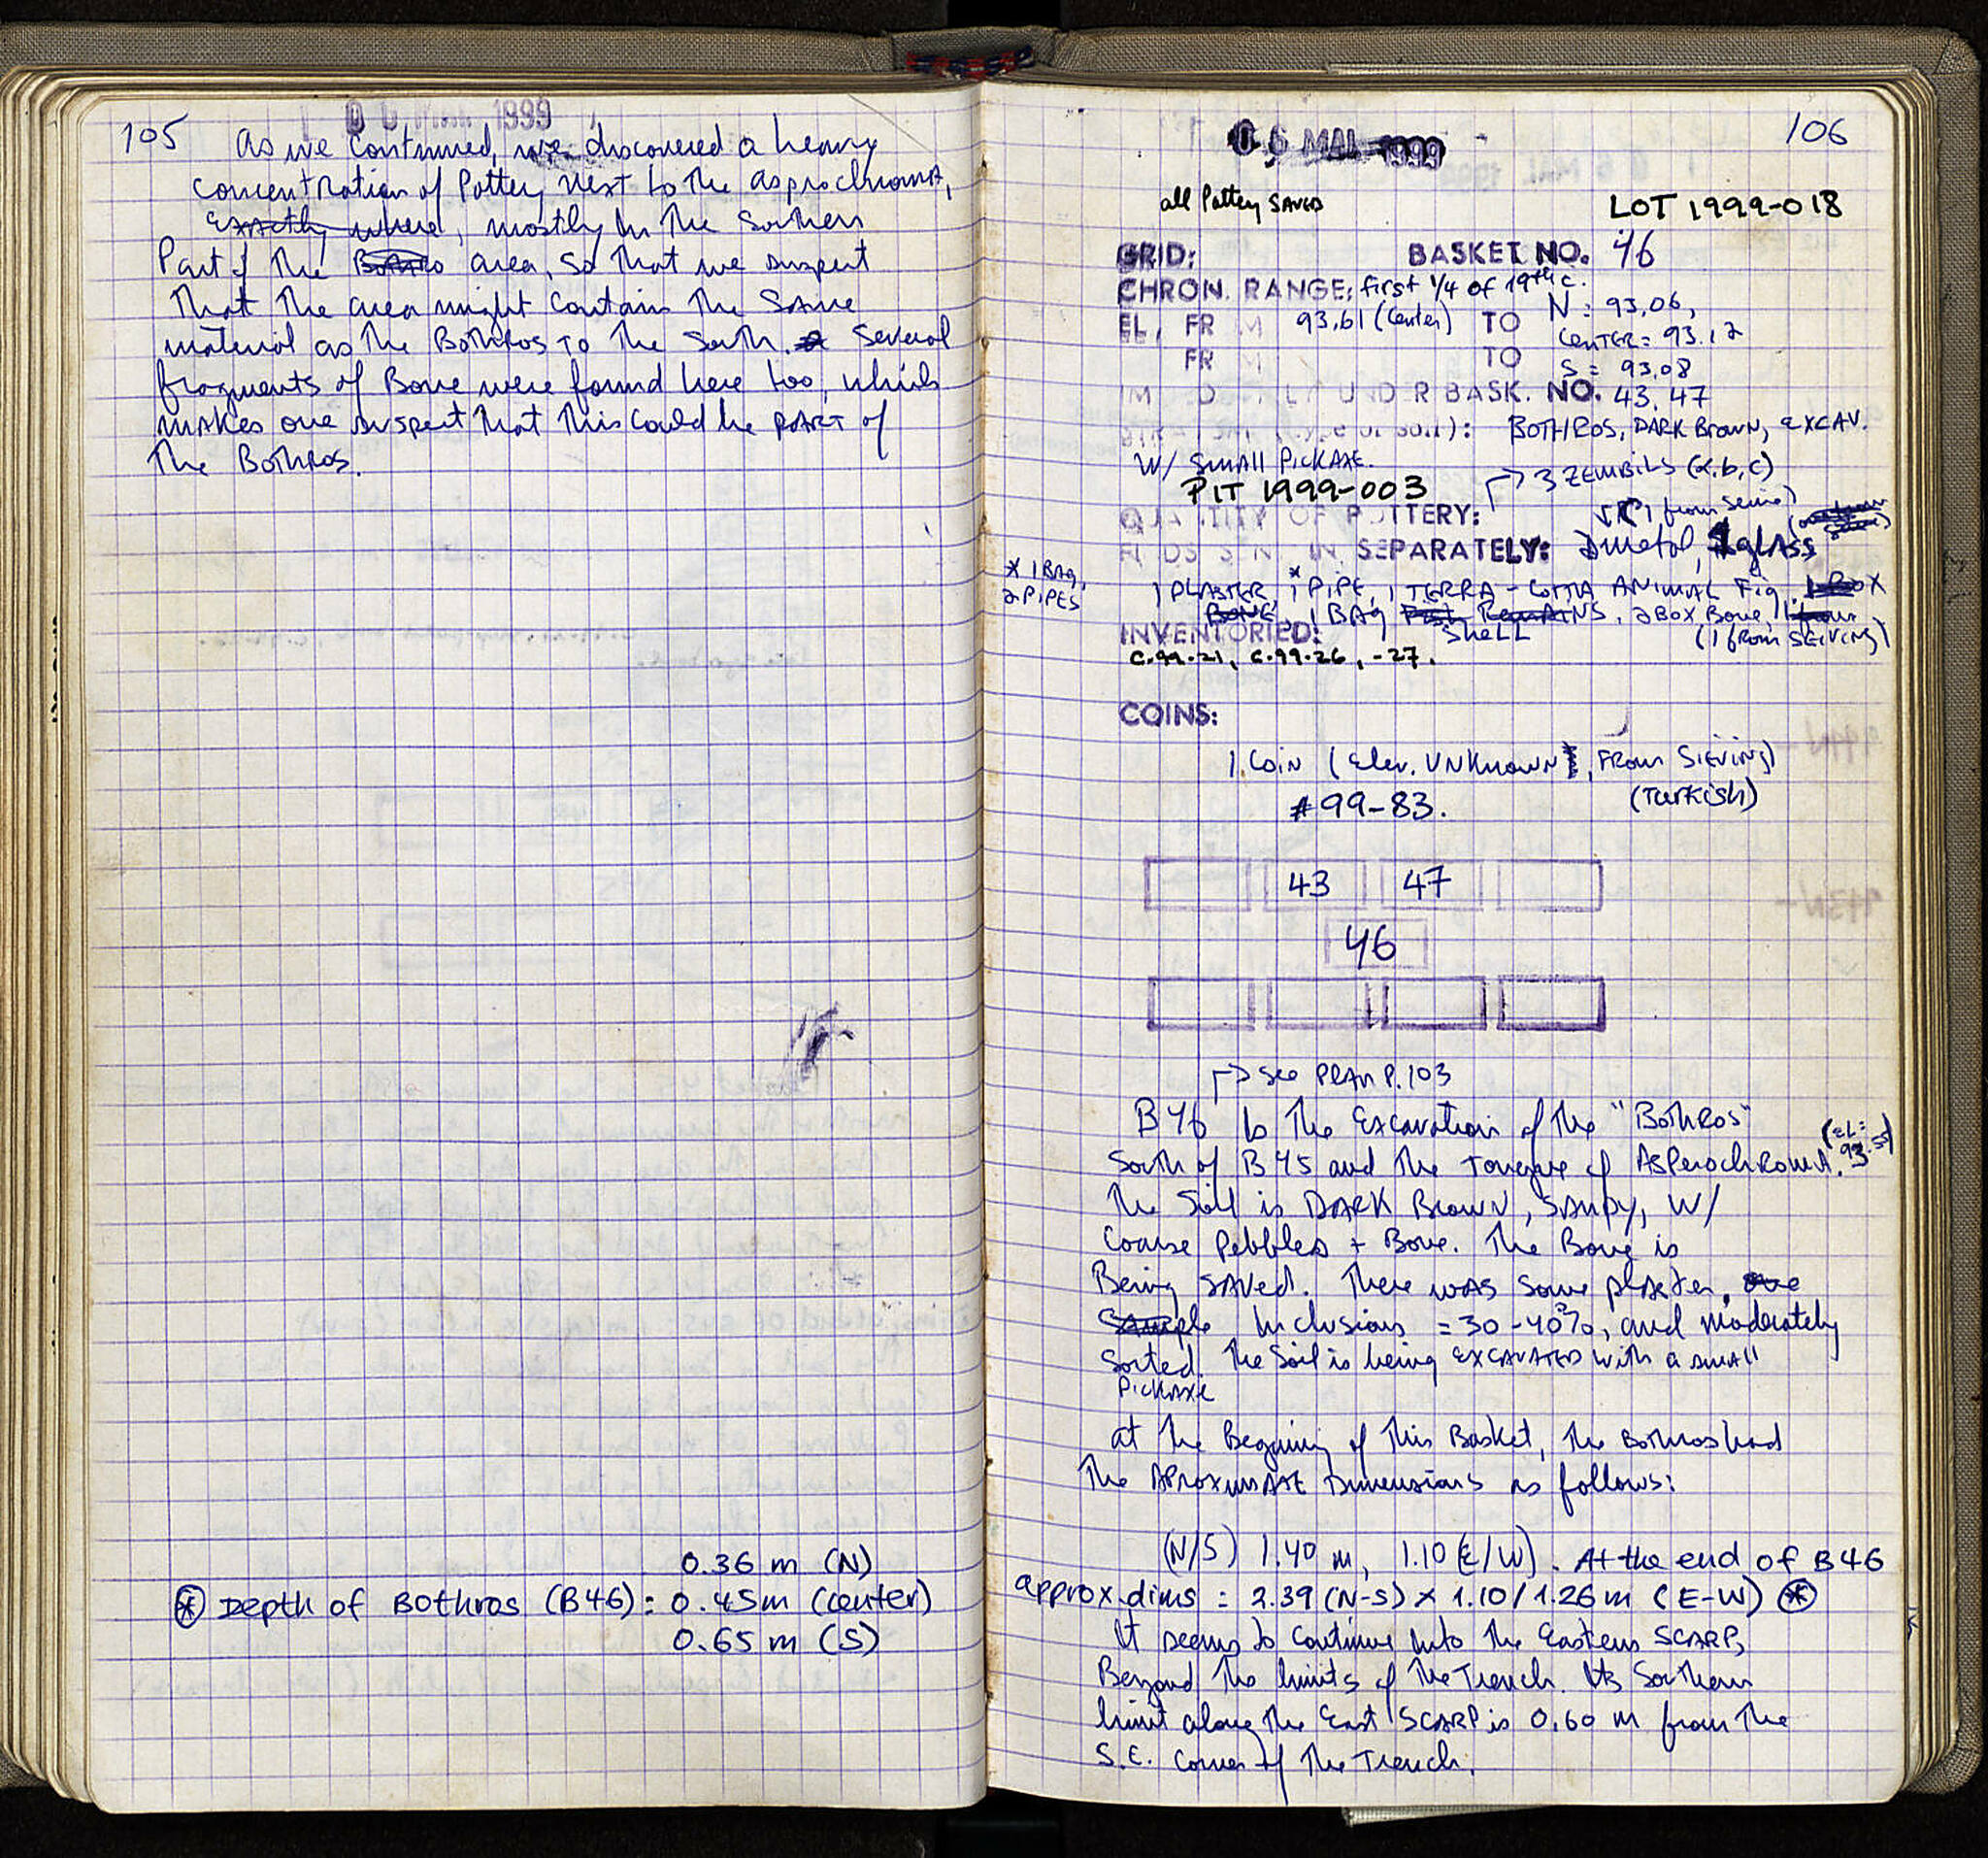 105
1999
as we continued, we discovered a heavy
concentration of Pottery next to the asprochroma,
Exactly where, mostly in the Southern
Part of the Bothro area, so that we suspect
that the area might contain the same
material as the Bothros to the South. Several
fragments of Bone were found here too, which
makes one suspect that this could be part of
the Bothros.
0.36 m (N)
⊛ Depth of Bothros (B46): 0.45m (center)
0.65 m (S)
106
06 MAI 1999
all Pottery SAVED
LOT 1999-018
GRID: BASKET NO. 46
CHRON. RANGE: first 1/4 of 19th c.
EL. FR M 93,61 (Center) TO N: 93,06,
CENTER = 93.12
FR M TO S = 93,08
IM D LY UND R BASK. NO. 43, 47
BOTHROS, DARK Brown, EXCAV.
W/ SMALL PICKAXE.
PIT 1999-003
→ 3 ZEMBILS (a,b,c)
QUA TITY OF POTTERY:
(1 from
FI DS SEN IN SEPARATELY: 2 metal, 1 glass
* 1 BAg,
2 PIPES
1 PLASTER, * PIPE, 1 TERRA-COTTA ANIMAL Fig, 1 BOX
BONE, 1 BAg Fish RemAINS, 2 BOX Bone,
Shell
(1 from SEIVING)
INVENTORIED:
C.99.21, C.99.26, -27.
COINS:
1 Coin (Elev. UNKNOWN, FROM SIEVING)
(Turkish)
#99-83.
43 47
46
→ See PLAN P. 103
B46 is the Excavation of the "Bothros"
South of B45 and the Tongue of AsperochRomA. (EL=
The Soil is DARK Brown, SANDY, W/
Coarse Pebbles + Bone. The Bone is
Being SAVED. There was some plaster, one
Sample Inclusions = 30-40%, and moderately
Sorted. The Soil is being EXCAVATED with a small
PICKAXE
at the Begining of this Basket, the Bothros had
The APROXIMATE Dimensions as follows:
(N/S) 1.40 m, 1.10 (E/W). At the end of B46
approx. dims = 2.39 (N-S) x 1.10/1.26 m (E-W) ⊛
It seems to continue into the Eastern SCARP,
Beyond the limits of the Trench. Its Southern
limit along the East SCARP is 0,60 m from the
S.E. corner of the Trench.